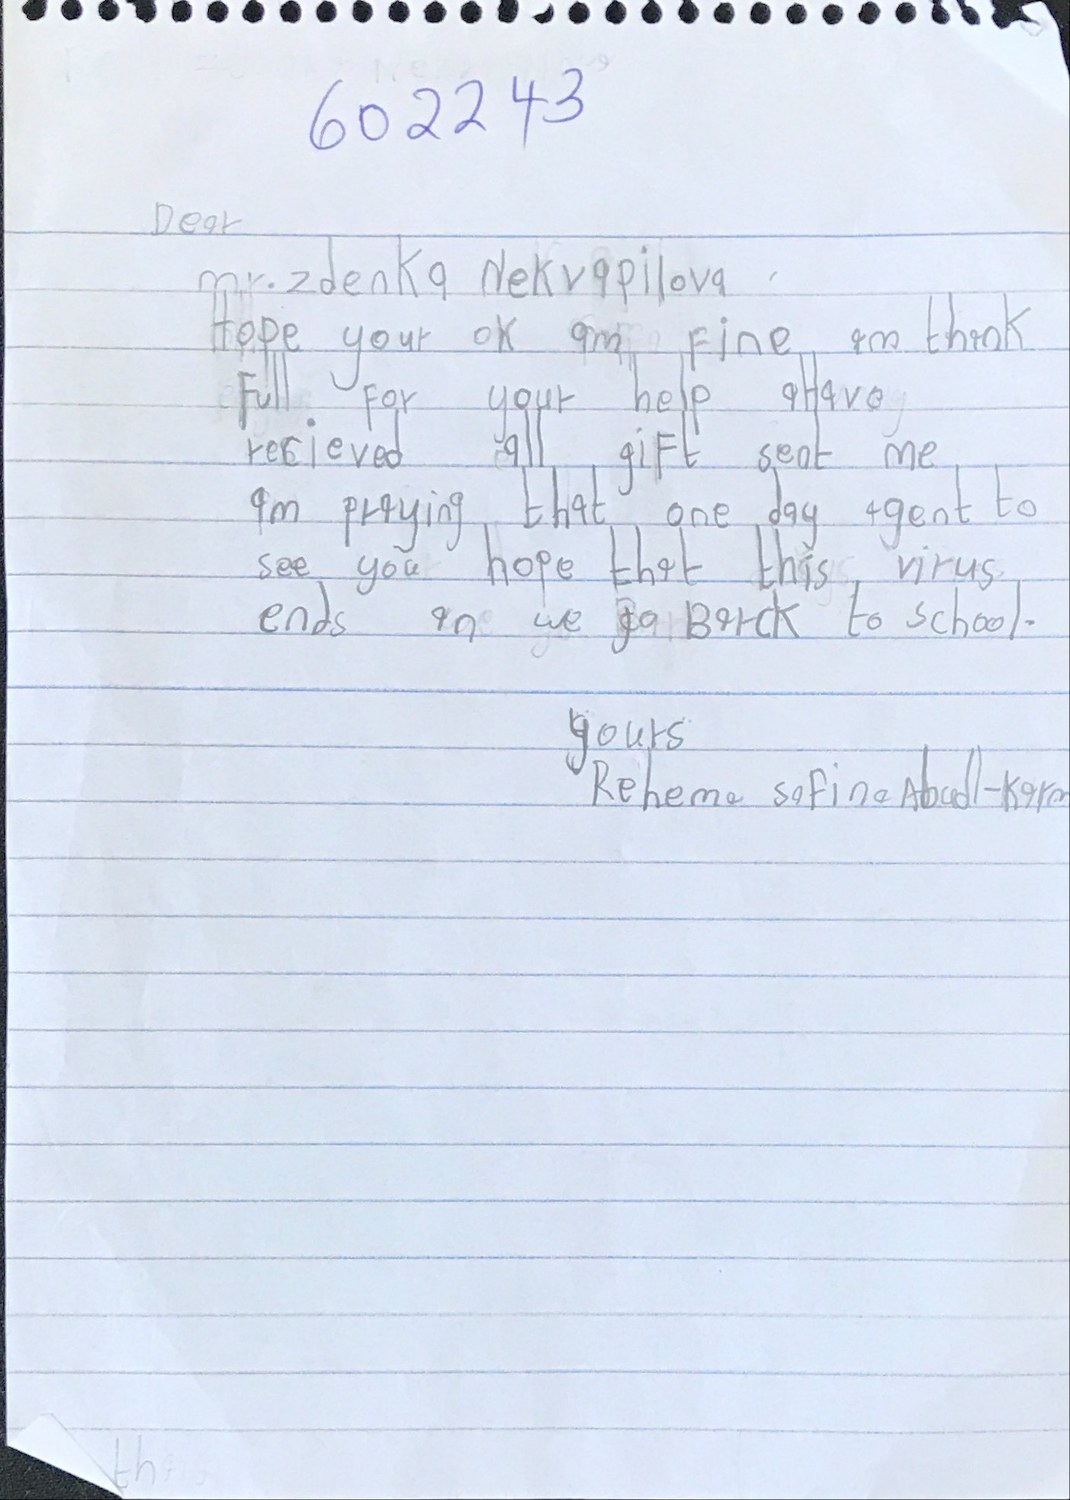 602243
Dear
mr. zdenka Nekvapilova
Hope your ok am fine am thank
Full For your help aHave
recieved all giFt sent me
am praying that one day agent to
see you hope that this virus
ends an we go Barck to school.
yours
Rehema safina Abudl-Karm
th